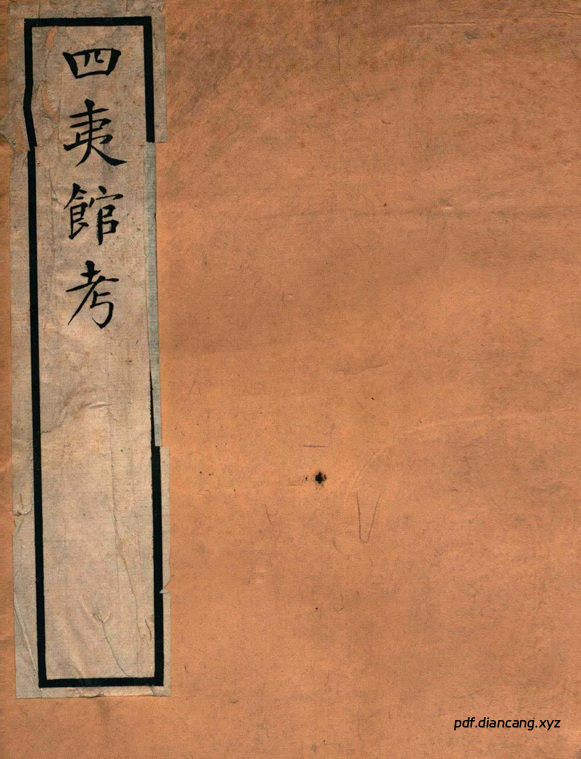 四夷館考
pdf.diancang.xyz